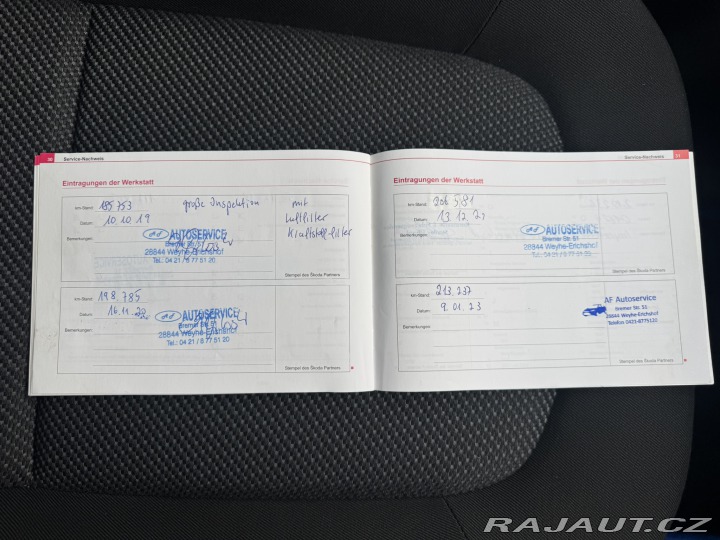 30 Service-Nachweis
Eintragungen der Werkstatt
km-Stand: 185.753 große Inspektion mit
Datum: 10.10.19 Luftfilter
Kraftstofffilter
Bemerkungen:
ad AUTOSERVICE
Bremer Str. 51
28844 Weyhe-Erichshof
Tel.: 04 21 / 8 77 51 20
Stempel des Škoda Partners
km-Stand: 198.785
Datum: 16.11.20
Bemerkungen:
ad AUTOSERVICE
Bremer Str. 51
28844 Weyhe-Erichshof
Tel.: 04 21 / 8 77 51 20
Stempel des Škoda Partners
Service-Nachweis 31
Eintragungen der Werkstatt
km-Stand: 206.581
Datum: 13.12.21
Bemerkungen:
ad AUTOSERVICE
Bremer Str. 51
28844 Weyhe-Erichshof
Tel.: 04 21 / 8 77 51 20
Stempel des Škoda Partners
km-Stand: 213.237
Datum: 9.01.23
Bemerkungen:
AF Autoservice
Bremer Str. 51
28844 Weyhe-Erichshof
Telefon 0421-8775120
Stempel des Škoda Partners
RAJAUT.CZ